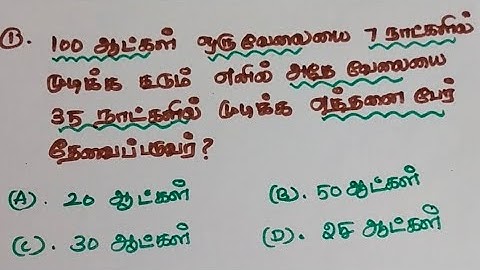 ①. 100 ஆட்கள் ஒரு வேலையை 7 நாட்களில்
முடிக்க கூடும் எனில் அதே வேலையை
35 நாட்களில் முடிக்க எத்தனை பேர்
தேவைப்படுவர்?
(A). 20 ஆட்கள் (B). 50 ஆட்கள்
(C). 30 ஆட்கள் (D). 25 ஆட்கள்